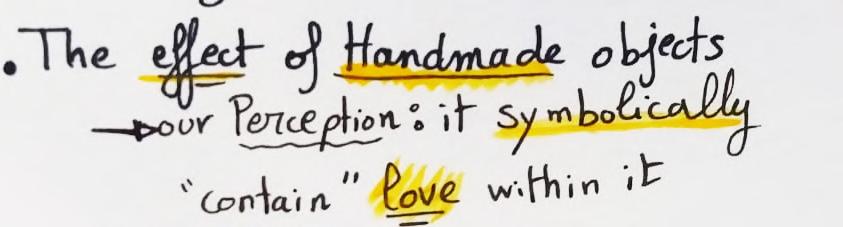 . The effect of Handmade objects
→ our Perception : it symbolically
"contain" love within it